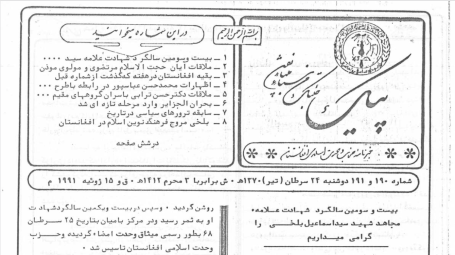 بسم الله الرحمن الرحیم
در این شماره میخوانید
۱ ــ بیست وسومین سالگرد شهادت علامه سید ....
۲ ــ ملاقات آیان حجت الاسلام مرتضوی و مولوی موذن
۳ ــ بقیه افغانستان درهفته گذشت از شماره قبل
۴ ــ اظهارات محمدحسن عباسپور در رابطه باطرح ....
۵ ــ ملاقات دکترحسن ترابی باسران گروههای مقیم ....
۶ ــ بحران الجزایر وارد مرحله تازه ای شد
۷ ــ سابقه ترورهای سیاسی درتاریخ
۸ ــ بلخی مروج فرهنگ نوین اسلام در افغانستان
درشش صفحه
پیک
شماره ۱۹۰ و ۱۹۱ دوشنبه ۲۴ سرطان (تیر) ۱۳۷۰ه‍ ش برابربا ۳ محرم ۱۴۱۲ه‍ ق و ۱۵ ژوئیه ۱۹۹۱ م
بیست و سومین سالگرد شهادت علامه
مجاهد شهید سیداسماعیل بلخی را
گرامی میداریم
روشن گردید و سپس دربیست ویکمین سالگردشهادت
او به ثمر رسید ودر مرکز بامیان بتاریخ ۲۵ سرطان
۶۸ بطور رسمی میثاق وحدت امضاء گردیده وحزب
وحدت اسلامی افغانستان تاسیس شد